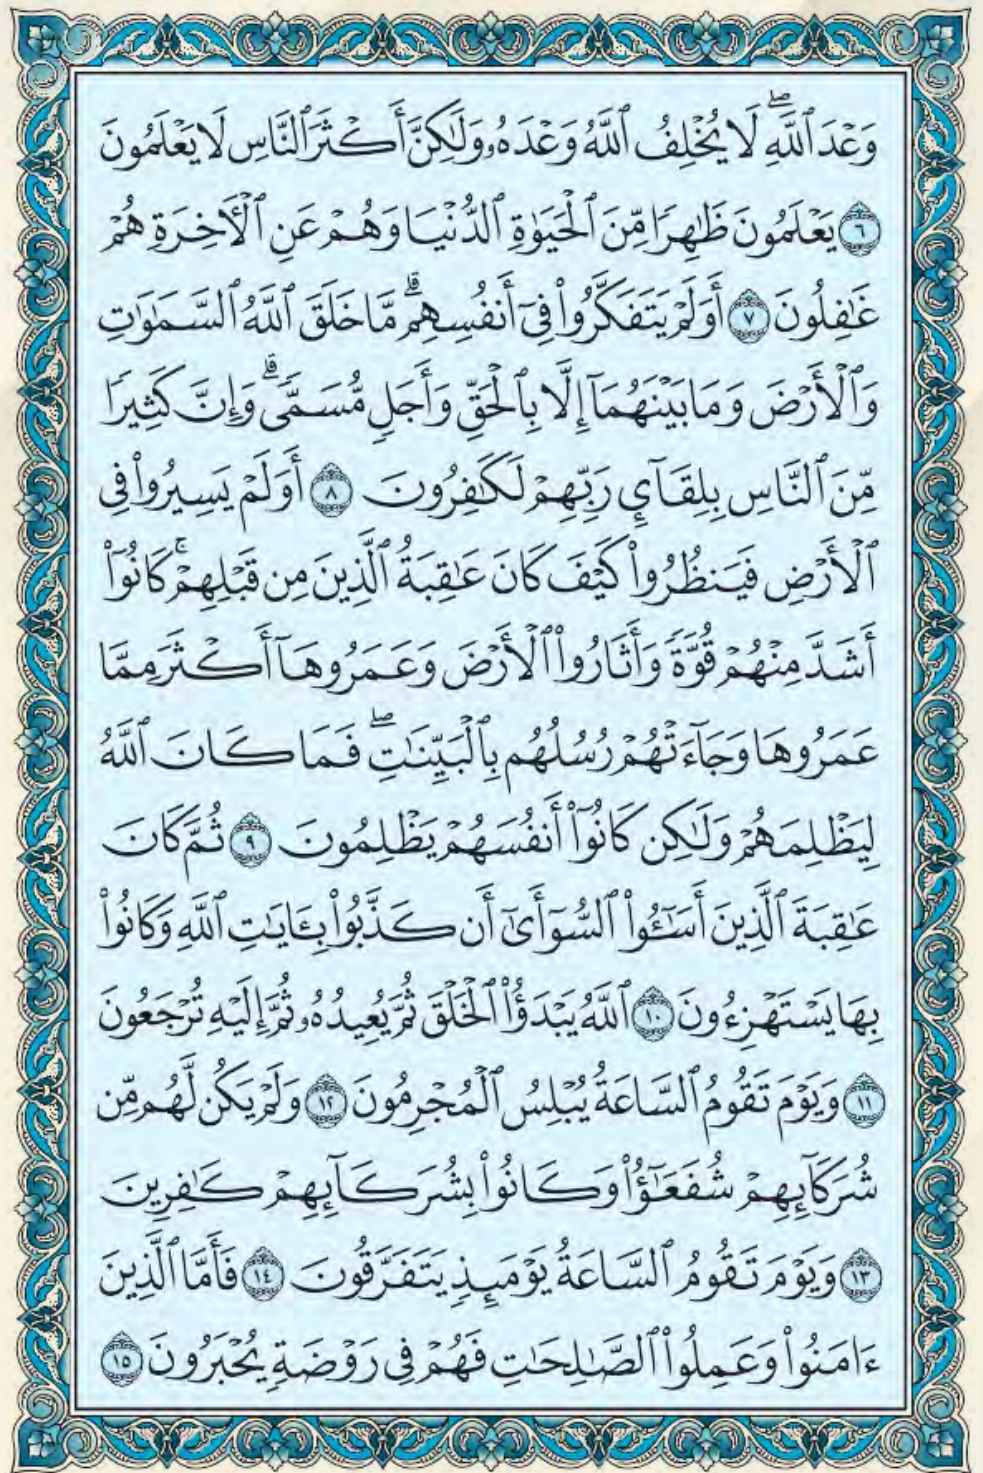 وَعْدَ ٱللَّهِۖ لَا يُخْلِفُ ٱللَّهُ وَعْدَهُۥ وَلَٰكِنَّ أَكْثَرَ ٱلنَّاسِ لَا يَعْلَمُونَ
٦ يَعْلَمُونَ ظَٰهِرًا مِّنَ ٱلْحَيَوٰةِ ٱلدُّنْيَا وَهُمْ عَنِ ٱلْأَخِرَةِ هُمْ
غَٰفِلُونَ ٧ أَوَلَمْ يَتَفَكَّرُوا۟ فِىٓ أَنفُسِهِمۗ مَّا خَلَقَ ٱللَّهُ ٱلسَّمَٰوَٰتِ
وَٱلْأَرْضَ وَمَا بَيْنَهُمَآ إِلَّا بِٱلْحَقِّ وَأَجَلٍ مُّسَمًّىۗ وَإِنَّ كَثِيرًا
مِّنَ ٱلنَّاسِ بِلِقَآئِ رَبِّهِمْ لَكَٰفِرُونَ ٨ أَوَلَمْ يَسِيرُوا۟ فِى
ٱلْأَرْضِ فَيَنظُرُوا۟ كَيْفَ كَانَ عَٰقِبَةُ ٱلَّذِينَ مِن قَبْلِهِمْۚ كَانُوٓا۟
أَشَدَّ مِنْهُمْ قُوَّةً وَأَثَارُوا۟ ٱلْأَرْضَ وَعَمَرُوهَآ أَكْثَرَ مِمَّا
عَمَرُوهَا وَجَآءَتْهُمْ رُسُلُهُم بِٱلْبَيِّنَٰتِۖ فَمَا كَانَ ٱللَّهُ
لِيَظْلِمَهُمْ وَلَٰكِن كَانُوٓا۟ أَنفُسَهُمْ يَظْلِمُونَ ٩ ثُمَّ كَانَ
عَٰقِبَةَ ٱلَّذِينَ أَسَٰٓـُٔوا۟ ٱلسُّوٓأَىٰٓ أَن كَذَّبُوا۟ بِـَٔايَٰتِ ٱللَّهِ وَكَانُوا۟
بِهَا يَسْتَهْزِءُونَ ١٠ ٱللَّهُ يَبْدَؤُا۟ ٱلْخَلْقَ ثُمَّ يُعِيدُهُۥ ثُمَّ إِلَيْهِ تُرْجَعُونَ
١١ وَيَوْمَ تَقُومُ ٱلسَّاعَةُ يُبْلِسُ ٱلْمُجْرِمُونَ ١٢ وَلَمْ يَكُن لَّهُم مِّن
شُرَكَآئِهِمْ شُفَعَٰٓؤُا۟ وَكَانُوا۟ بِشُرَكَآئِهِمْ كَٰفِرِينَ
١٣ وَيَوْمَ تَقُومُ ٱلسَّاعَةُ يَوْمَئِذٍ يَتَفَرَّقُونَ ١٤ فَأَمَّا ٱلَّذِينَ
ءَامَنُوا۟ وَعَمِلُوا۟ ٱلصَّٰلِحَٰتِ فَهُمْ فِى رَوْضَةٍ يُحْبَرُونَ ١٥